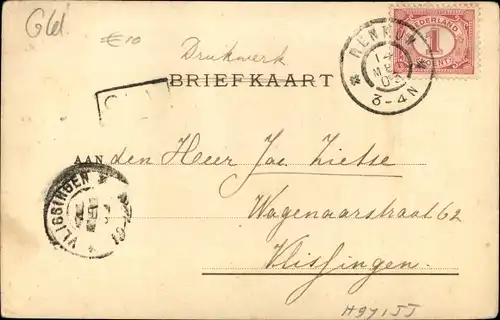 Gld.
€10
Drukwerk
BRIEFKAART
NEDERLAND
1
CENT
RENKUM
14
03
3-4N
AAN den Heer Jac Zietse
Wagenaarstraat 62
Vlissingen.
VLISSINGEN
H971JJ